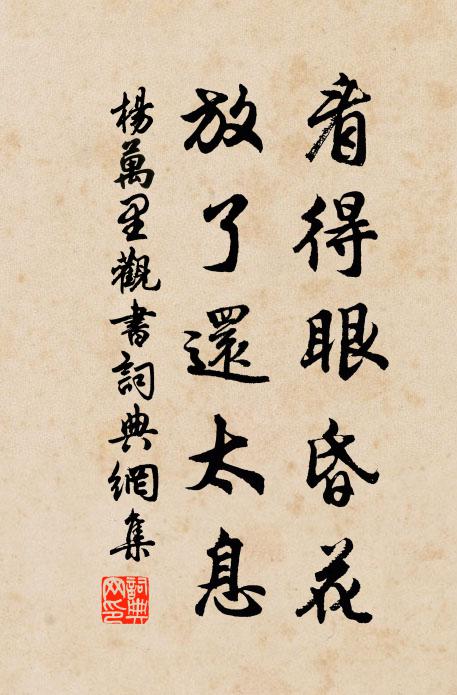 看得眼昏花
放了還太息
楊萬里觀書詞典網集
詞典網印